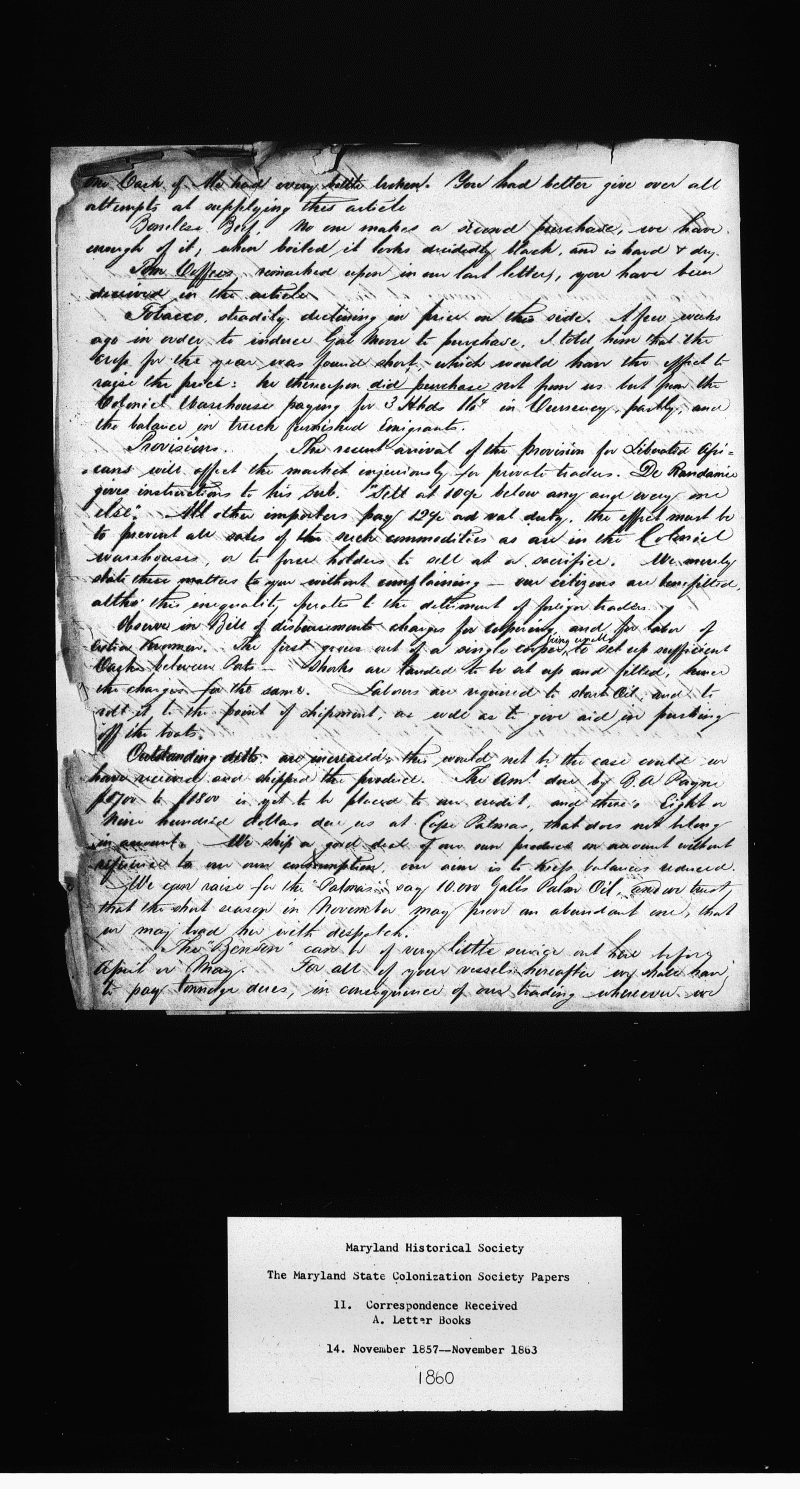 the Cask of Ale had every bottle broken. You had better give over all
attempts at supplying this article
Boneless Beef, No one makes a second purchase, we have
enough of it, when boiled, it looks decidedly black, and is hard & dry.
remarked upon in our last letters, you have been
deceived in the article
Tobacco, steadily declining in price on this side. A few weeks
ago in order to induce Gal Moore to purchase, I told him that the
crop for the year was found short, which would have the effect to
raise the price: he thereupon did purchase not from us but from the
Colonial Warehouse paying for 3 Hhds in Currency, partly, and
the balance on truck furnished Emigrants.
Provisions. The recent arrival of the provision for Liberated Afri=
=cans will affect the market injuriously for private traders. De Randamie
gives instructions to his sub. "Sell at 10%c below any and every one
else". All other importers pay 12%c ad val duty, the effect must be
to prevent all sales of the such commodities as are in the Colonial
warehouses, or to force holders to sell at a sacrifice. We merely
state these matters to you without complaining — our citizens are benefitted,
altho' the inequality operates to the detriment of foreign traders.
Observe in Bill of disbursements charges for coopering and for labor of
Kroomen. The first grows out of a single cooper being unable to set up sufficient
Casks between Ports — Shooks are landed to be set up and filled, hence
the charges for the same. Labours are required to start Oil and to
roll it, to the point of shipment, as well as to give aid in pushing
off the boats.
Outstanding debts are increased; this would not be the case could we
have received and shipped the produce. The Amt. due by B. A Payne
$1700 to $1800 is yet to be placed to our credit, and there's Eight or
Nine hundred dollars due us at Cape Palmas, that does not belong
in amount. We ship a good deal of our own produce on account without
reference to our own consumption, our aim is to keep balances reduced.
We can raise for the "Palmas" say 10.000 Galls Palm Oil, and we trust
that the short season in November may prove an abundant one, that
we may load her with despatch.
The "Benson" can be of very little service out here before
April or May. For all of your vessels hereafter we shall have
to pay tonnage dues, in consequence of our trading wherever we
Maryland Historical Society
The Maryland State Colonization Society Papers
II. Correspondence Received
A. Letter Books
14. November 1857--November 1863
1860